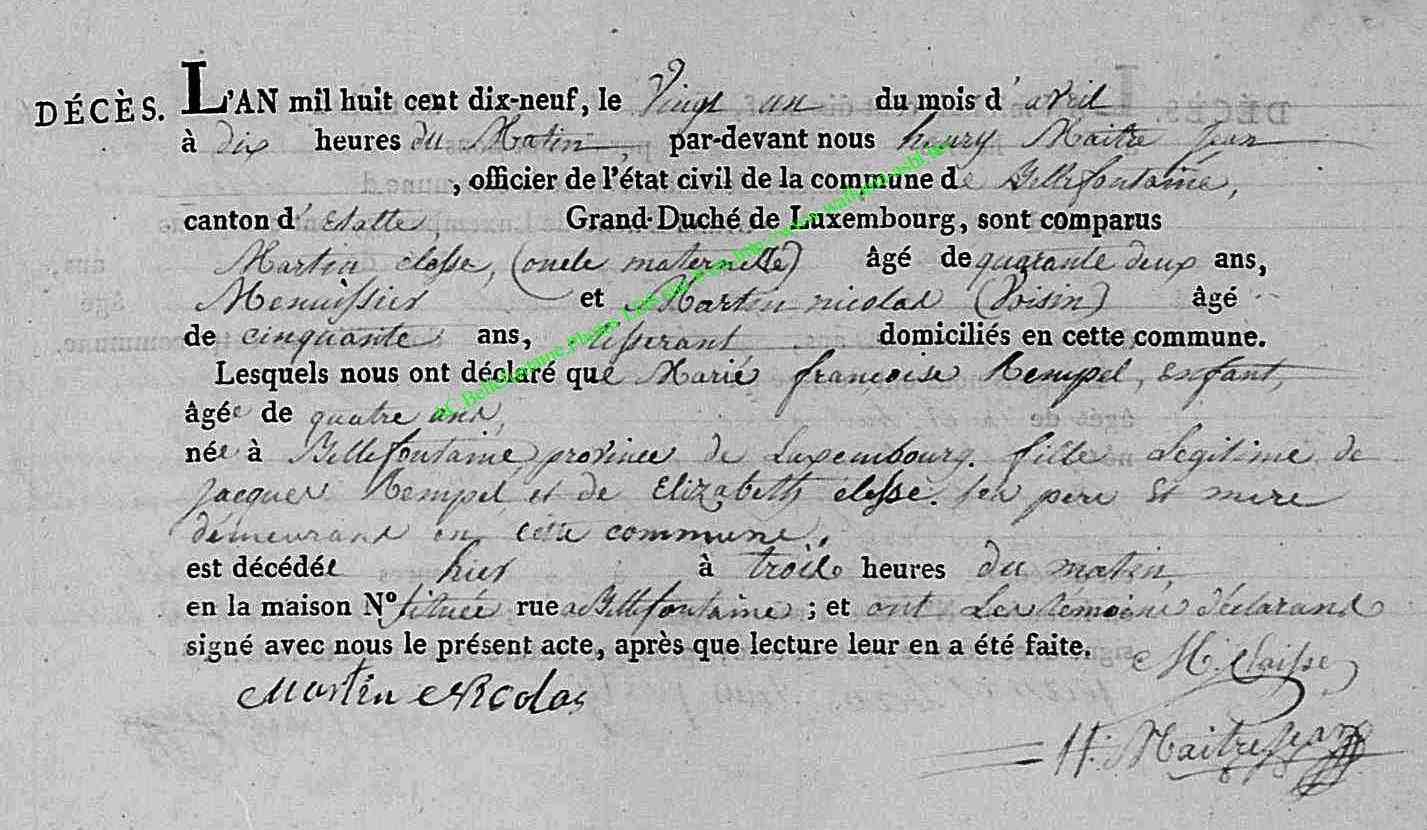 DÉCÈS. L'AN mil huit cent dix-neuf, le Vingt un du mois d'avril
à dix heures du Matin, par-devant nous henry Maitre jean
, officier de l'état civil de la commune de Bellefontaine,
canton d'Etalle Grand-Duché de Luxembourg, sont comparus
Martin closse, (oncle maternelle) âgé de quarante deux ans,
Menuissier et Martin nicolas (Voisin) âgé
de cinquante ans, tisserant domiciliés en cette commune.
Lesquels nous ont déclaré que Marie françoise Rempel, enfant,
âgée de quatre ans,
née à Bellefontaine, province de Luxembourg. fille Legitime de
jacques Rempel et de Elizabeth closse. ses pere et mere
demeurand en cette commune.
est décédée hier à trois heures du matin,
en la maison N° située rue a Bellefontaine ; et ont Les temoins déclarand
signé avec nous le présent acte, après que lecture leur en a été faite. M. Claisse
Martin Nicolas
H. Maitrejean